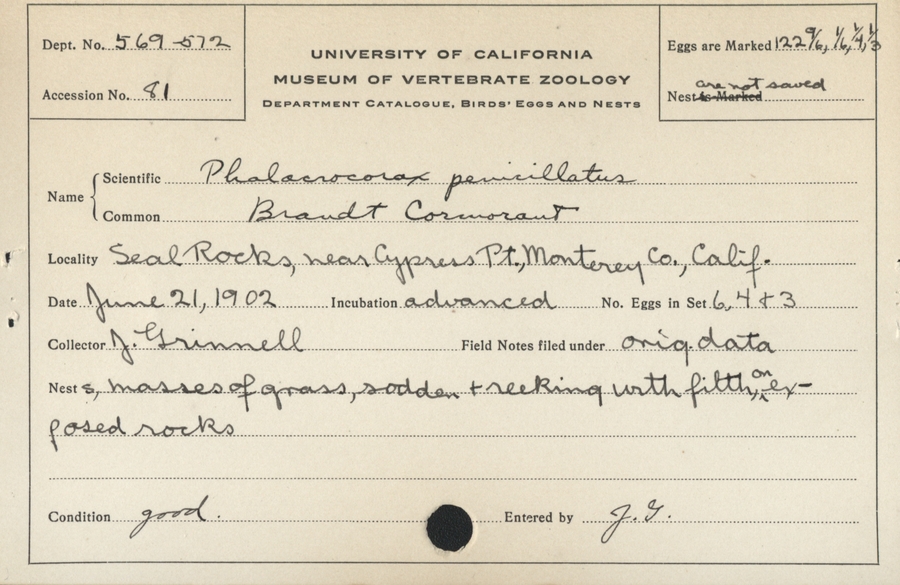 Dept. No. 569-572
UNIVERSITY OF CALIFORNIA
MUSEUM OF VERTEBRATE ZOOLOGY
DEPARTMENT CATALOGUE, BIRDS' EGGS AND NESTS
Accession No. 81
Eggs are Marked 122 9/6, 1/6, 1/4, 1/3
are not saved
Nest is Marked
Name
Scientific Phalacrocorax penicillatus
Common Brandt Cormorant
Locality Seal Rocks, near Cypress Pt., Monterey Co., Calif.
Date June 21, 1902 Incubation advanced No. Eggs in Set 6, 4 & 3
Collector J. Grinnell Field Notes filed under orig. data
Nest s, masses of grass, sodden + reeking with filth, on ex-
posed rocks
Condition good. Entered by J.G.